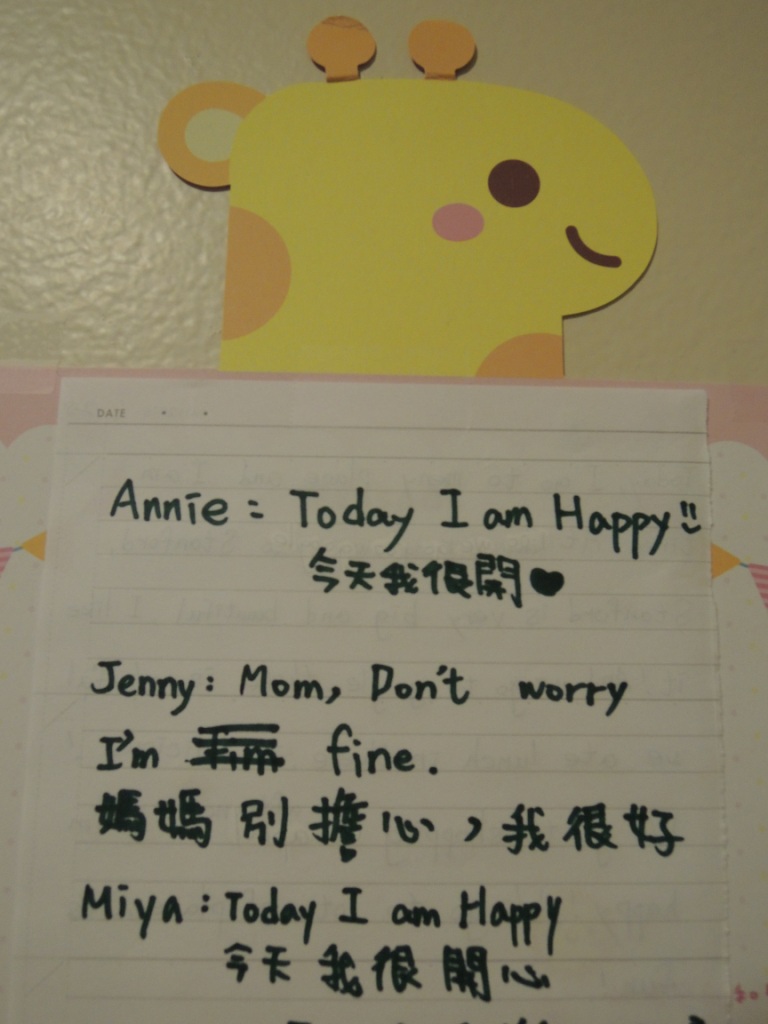 DATE
Annie: Today I am Happy!!
今天我很開♥
Jenny: Mom, Don't worry
I'm fine.
媽媽別擔心，我很好
Miya: Today I am Happy
今天我很開心